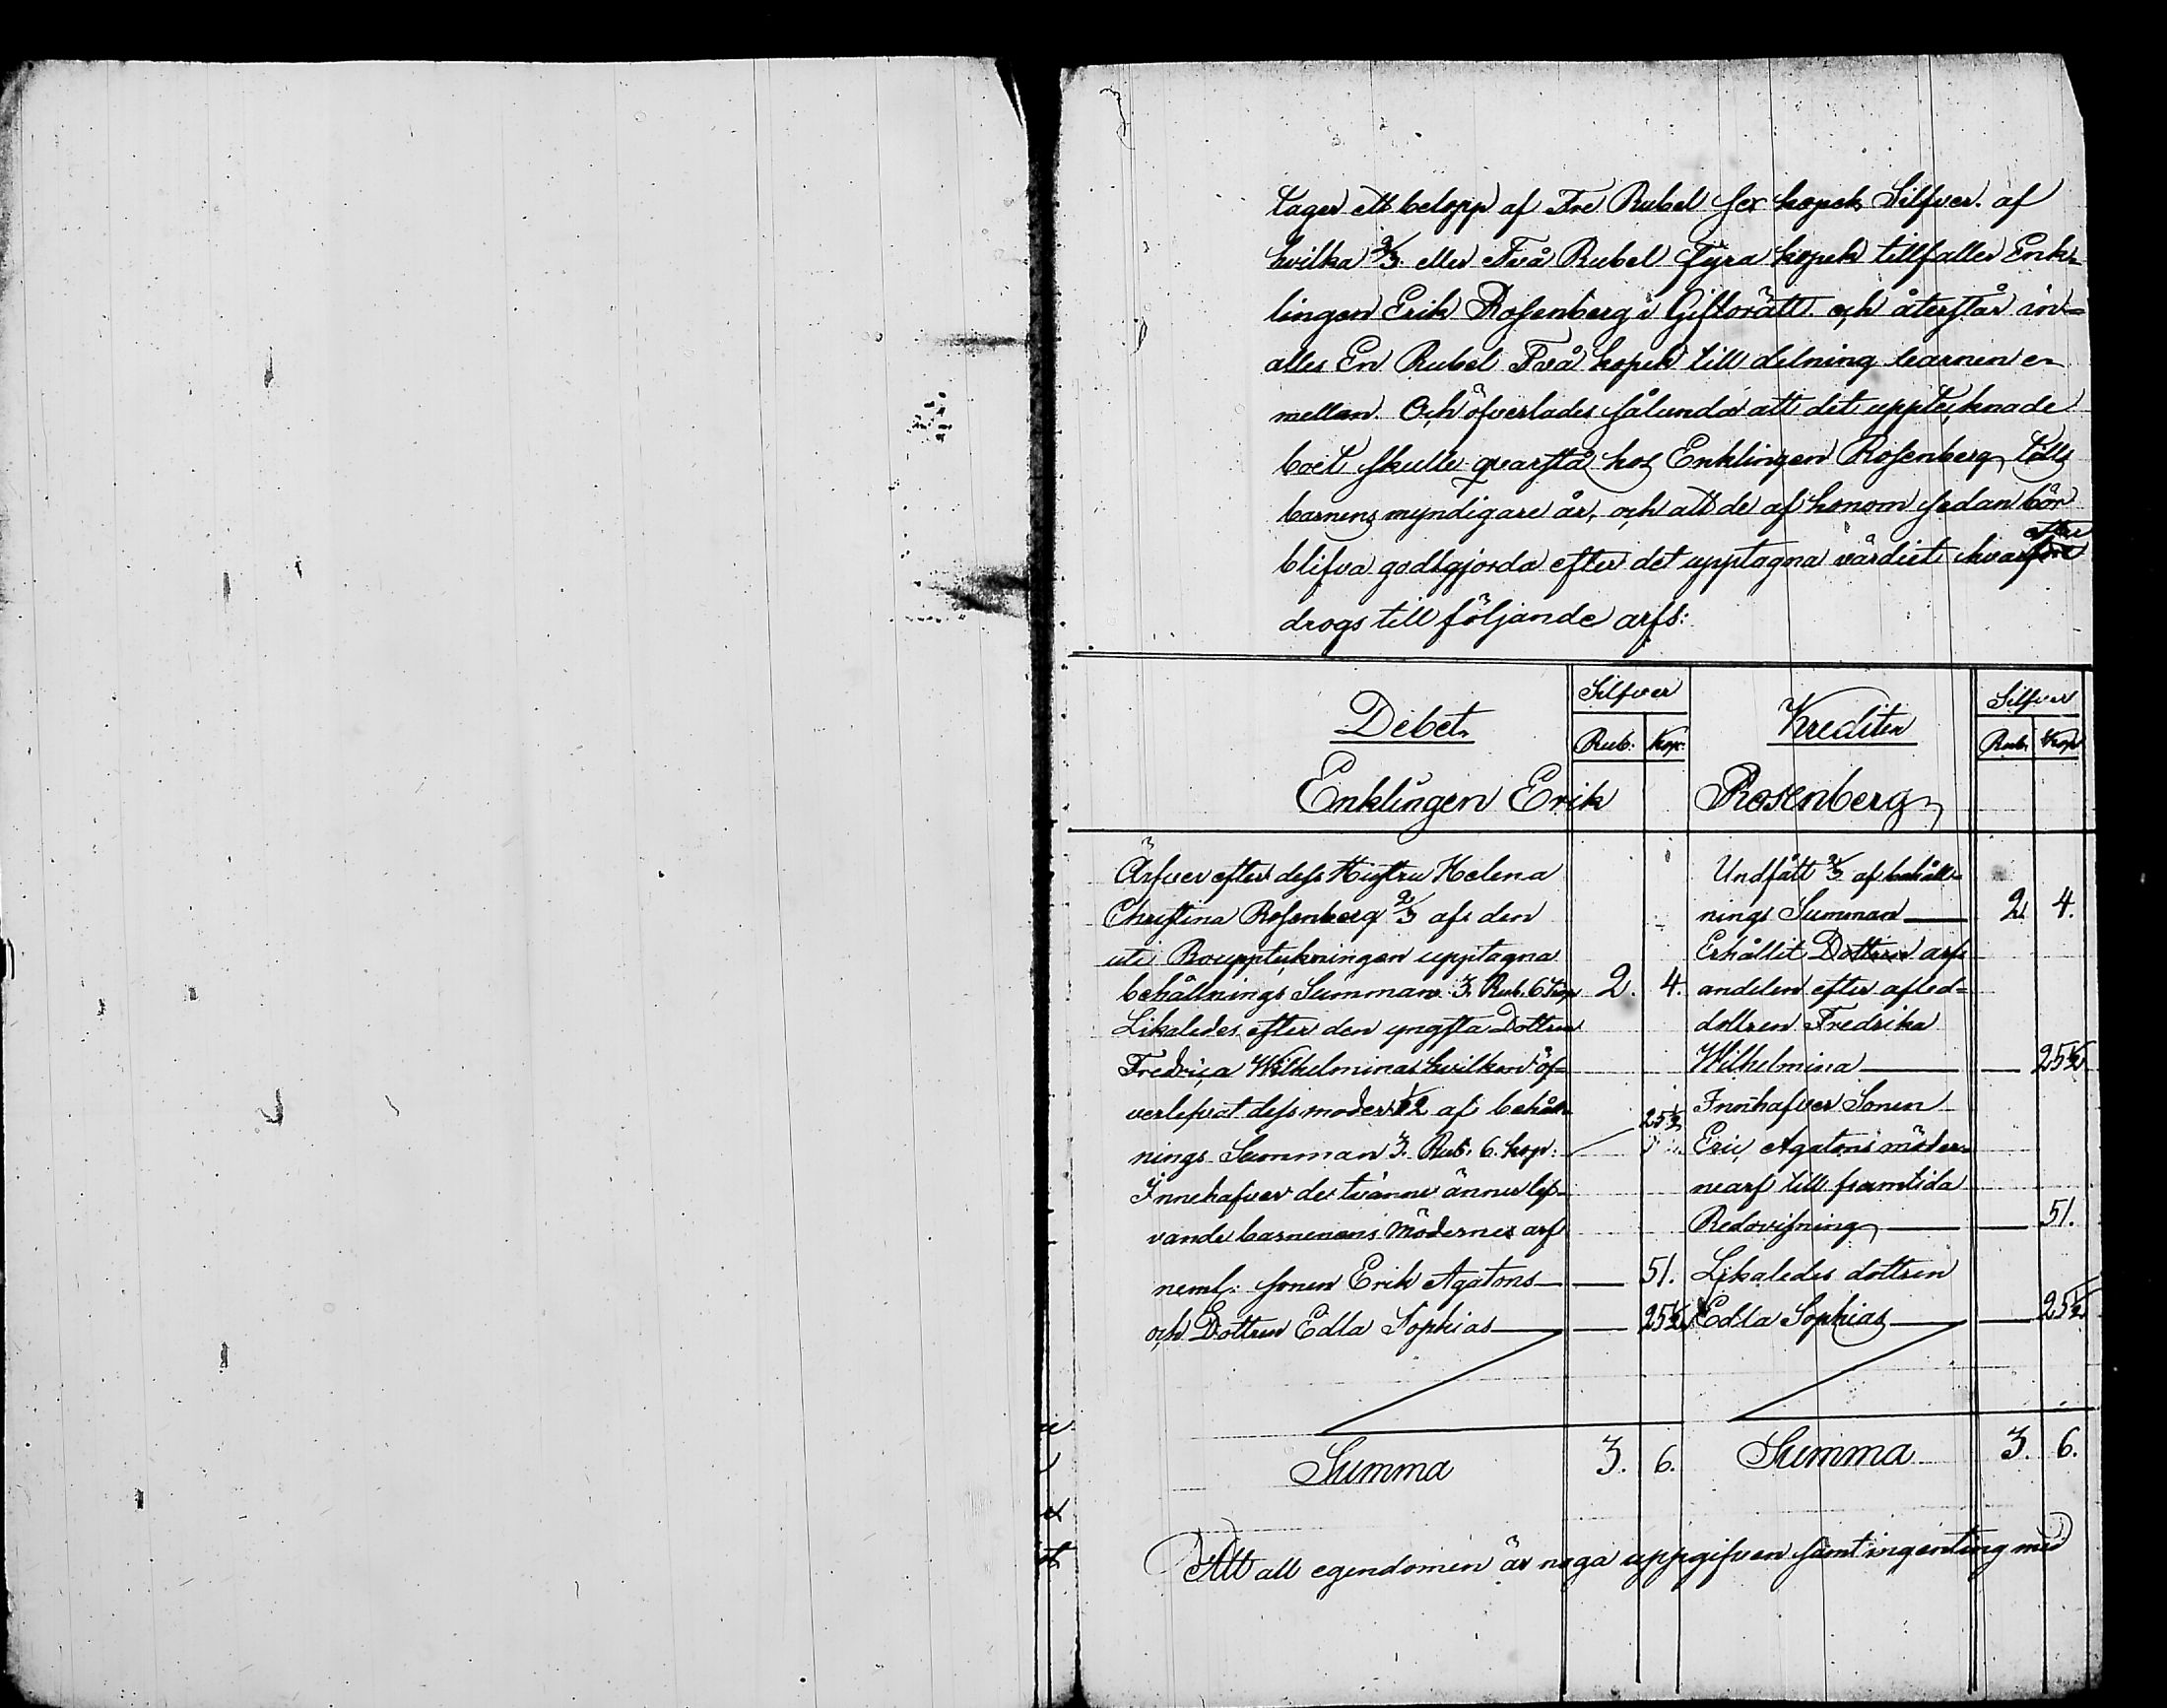 tager ett belopp af Tre Rubel sex kopek Silfver. af
hvilka 2/3 eller Två Rubel Fyra kopek tillfaller Enk=
lingen Erik Rosenberg i Giftorätt. och återstår in=
alles En Rubel Två kopek till delning barnen e=
mellan. Och öfverlades sålunda att det upptecknade
boet skulle qvarstå hos Enklingen Rosenberg tills
barnens myndigare år, och att de af honom sedan bör
blifva godtgjorda efter det upptagna värdiet hvarefter
drogs till följande arfs:
Debet. Silfver Rub. Kop. Krediten Silfver Rub. Kop
Enklingen Erik Rosenberg
Ärfver efter dess Hustru Helena
Christina Rosenberg 2/3 afs den
uti Bouppteckningen upptagna
behållnings Summan 3. Rub. 6 kop 2. 4.
Likaledes efter den yngsta Dottren
Fredrica Wilhelminas hvilken öf=
verlefvat dess moder 1/12 af behåll
nings Summan 3. Rub. 6. kop. 25 1/2
Innehafver de tvänne ännu lef=
vande barnenens Mödernes arf
neml: sonen Erik Agatons — 51.
och Dottren Edla Sophias — 25 1/2
Summa 3. 6.
Undfått 2/3 af behåll=
nings Summan 2 4.
Erhållit Dottren arfs
andelen efter afled=
dottren Fredrika
Wilhelmina — 25 1/2
Innhafver Sonen
Eric Agatons möder=
nearf till framtida
Redovisning — 51.
Likaledes dottren
Edla Sophias — 25 1/2
Summa 3. 6.
Att all egendomen är noga uppgifven samt ingenting med